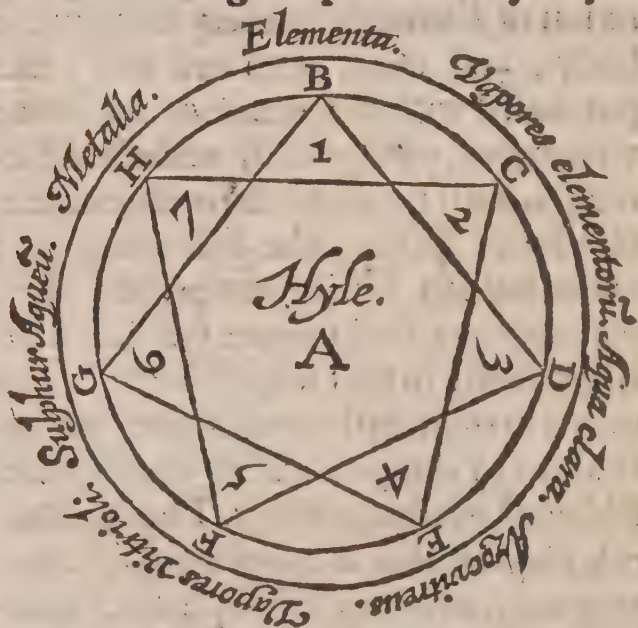 Elementa.
Vapores elementorũ.
Aqua clara.
vitreus.
Vapores Vitrioli.
Sulphur Aqueũ.
Metalla.
B
C
D
E
F
G
H
1
2
3
4
5
6
7
Hyle.
A